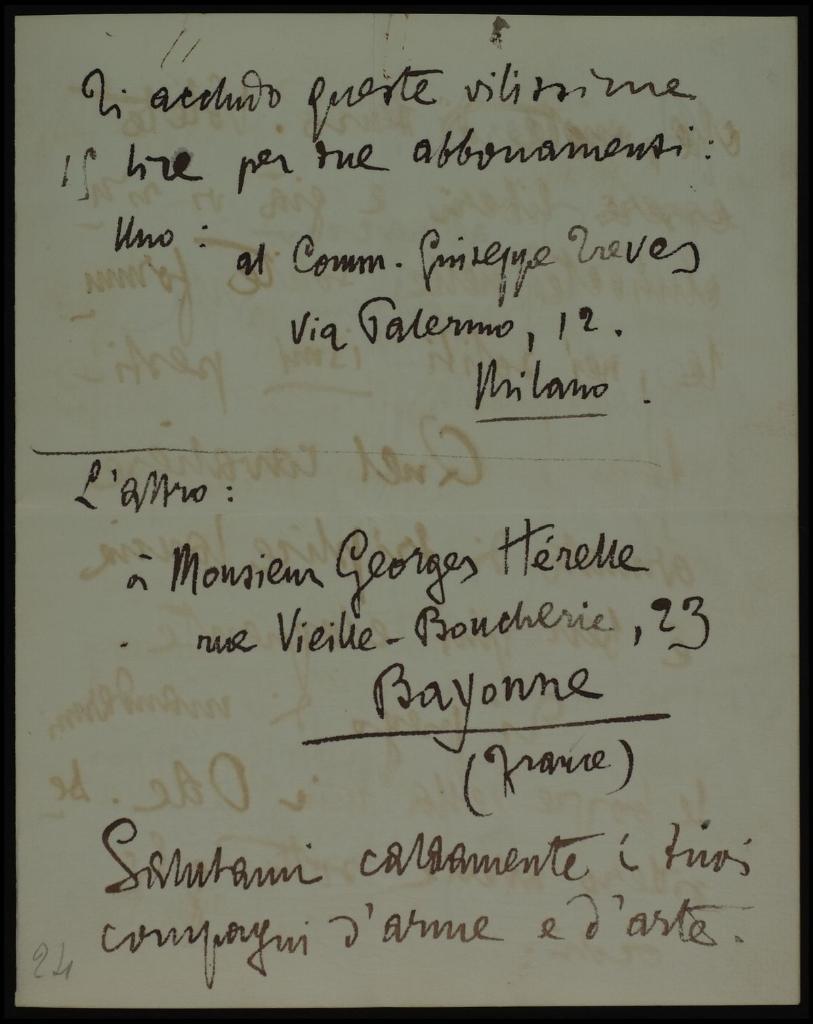 Ti accludo queste vilissime
15 lire per due abbonamenti:
Uno:
al Comm. Giuseppe Treves
Via Palermo, 12.
Milano.
L'altro:
à Monsieur Georges Hérelle
rue Vieille-Boucherie, 23
Bayonne
(France)
Salutami caldamente i tuoi
compagni d'arme e d'arte.
24